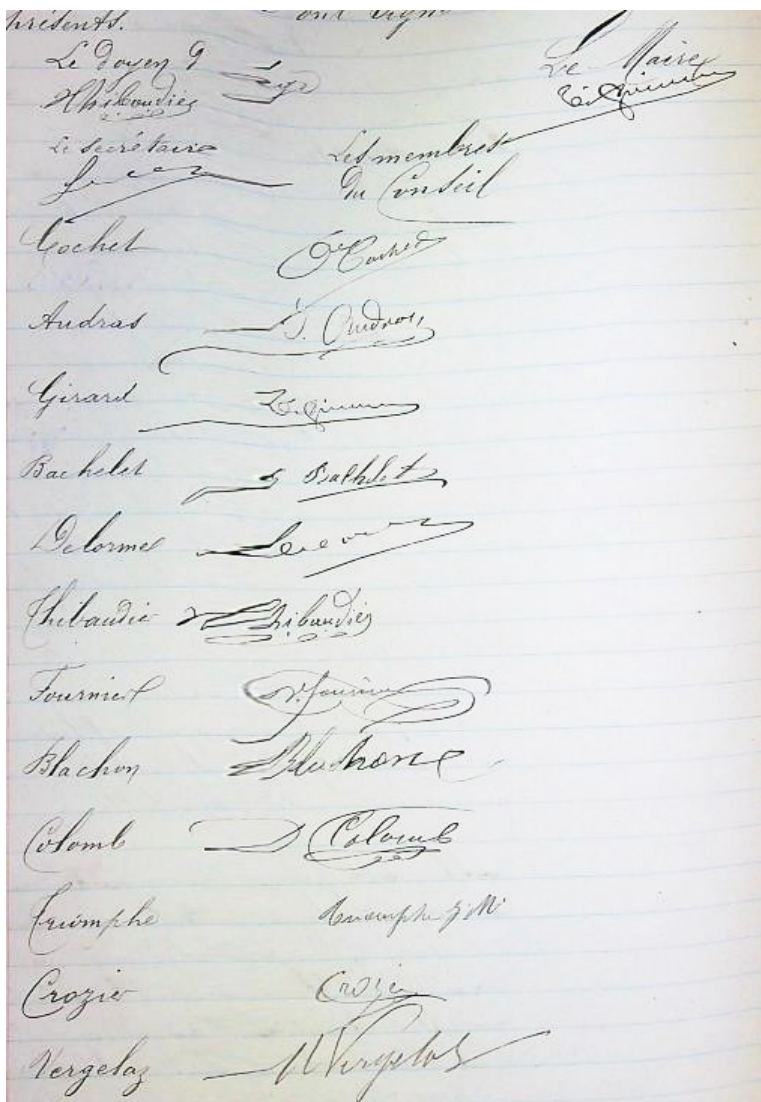 présents. ont signé
Le doyen d'âge
Thibaudier
Le Maire
Le secrétaire
Les membres
du Conseil
Cochet Cochet
Andras J. Andras
Girard
Bachelet Bachelet
Delorme
Thibaudier Thibaudier
Fournier
Blachon Blachon
Colomb Colomb
Triomphe Triomphe J M
Crozier Crozier
Vergelaz Vergelaz